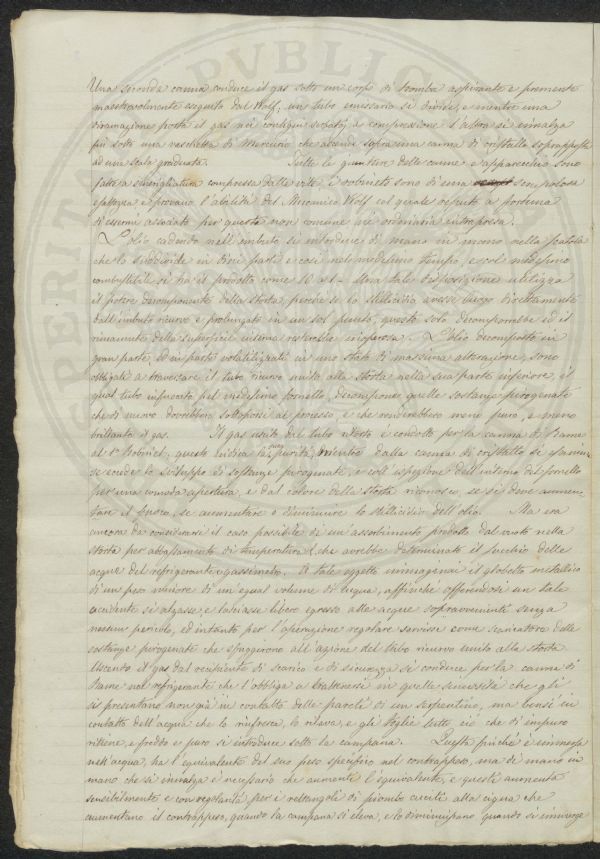 Una seconda canna conduce il gas sotto un corpo di tromba aspirante e premente
maestrevolmente eseguito dal Wolf; un tubo emissario si divide, e mentre una
diramazione porta il gas nei contigui serbatoj a compressione l'altra si innalza
fin sotto una vaschetta di Mercurio che ascende sopra una canna di cristallo soprapposta
ad una scala graduata. Tutte le giunture delle canne e apparecchio sono
fatte a compressa dalle viti, i robinetti sono di una scrupolosa
esattezza e provano l'abilità del Meccanico Wolf col quale reputo a fortuna
di essermi associato per questa non comune nè ordinaria intrapresa.
L'olio cadendo nell'imbuto si introduce di mano in mano nella scatola
che lo suddivide in dieci parti e così nel medesimo tempo, e col medesimo
combustibile si ha il prodotto come 10 a 1. Mora tale disposizione utilizza
il potere decomponente della storta, perchè se lo stillicidio avesse luogo direttamente
dall'imbuto ricurvo e prolungato in un sol punto, questo solo decomporrebbe ed il
rimanente della superficie interna resterebbe inoperosa. L'olio decomposto in
gran parte, ed in parte volatilizzato in uno stato di massima alterazione, sono
obbligati a traversare il tubo ricurvo unito alla storta nella sua parte inferiore, il
qual tubo infuocato pel medesimo fornello, decompone quelle sostanze pirogenate
che di nuovo dovrebbero sottoporsi al processo, e che renderebbero meno puro, e meno
brillante il gas. Il gas uscito dal tubo ritorto è condotto per la canna di Rame
al 1° Robinet; questo indica la sua purità, mentre dalla canna di cristallo si esamina
se eccede lo sviluppo di sostanze pirogenate, e coll'ispezione dell'interno del fornello
per una comoda apertura, e dal colore della storta riconosco, se si deve aumen-
tare il fuoco, se aumentare o diminuire lo stillicidio dell'olio. Ma era
ancora da considerarsi il caso possibile di un'assorbimento prodotto dal vuoto nella
storta per abbassamento di temperatura (che avrebbe determinato il succhio delle
acque del refrigerante e gassimetro. A tale oggetto immaginai il globetto metallico
di un peso minore di un egual volume di acqua, affinchè offerendosi un tale
accidente si alzasse, e lasciasse libero egresso alle acque sopravvenienti senza
nessun pericolo, ed intanto per l'operazione regolare servisse come scaricatore delle
sostanze pirogenate che sfuggirono all'azione del tubo ricurvo unito alla storta.
Uscendo il gas dal recipiente di scarico e di sicurezza si conduce per la canna di
Rame nel refrigerante che l'obbliga a trattenersi in quelle sinuosità che gli
si presentano non già in contatto delle pareti di un serpentino, ma bensì in
contatto dell'acqua che lo rinfresca, lo rilava, e gli toglie tutto ciò che di impuro
ritiene, e freddo e puro si introduce sotto la campana. Questa finchè è immersa
nell'acqua, ha l'equivalente del suo peso specifico nel contrappeso, ma di mano in
mano che si innalza è necessario che aumenti l'equivalente, e questi aumenta
sensibilmente e con regolarità, per i rettangoli di piombo cuciti alla cigna che
aumentano il contrappeso, quando la campana si eleva, e lo diminuiscono quando si immerge